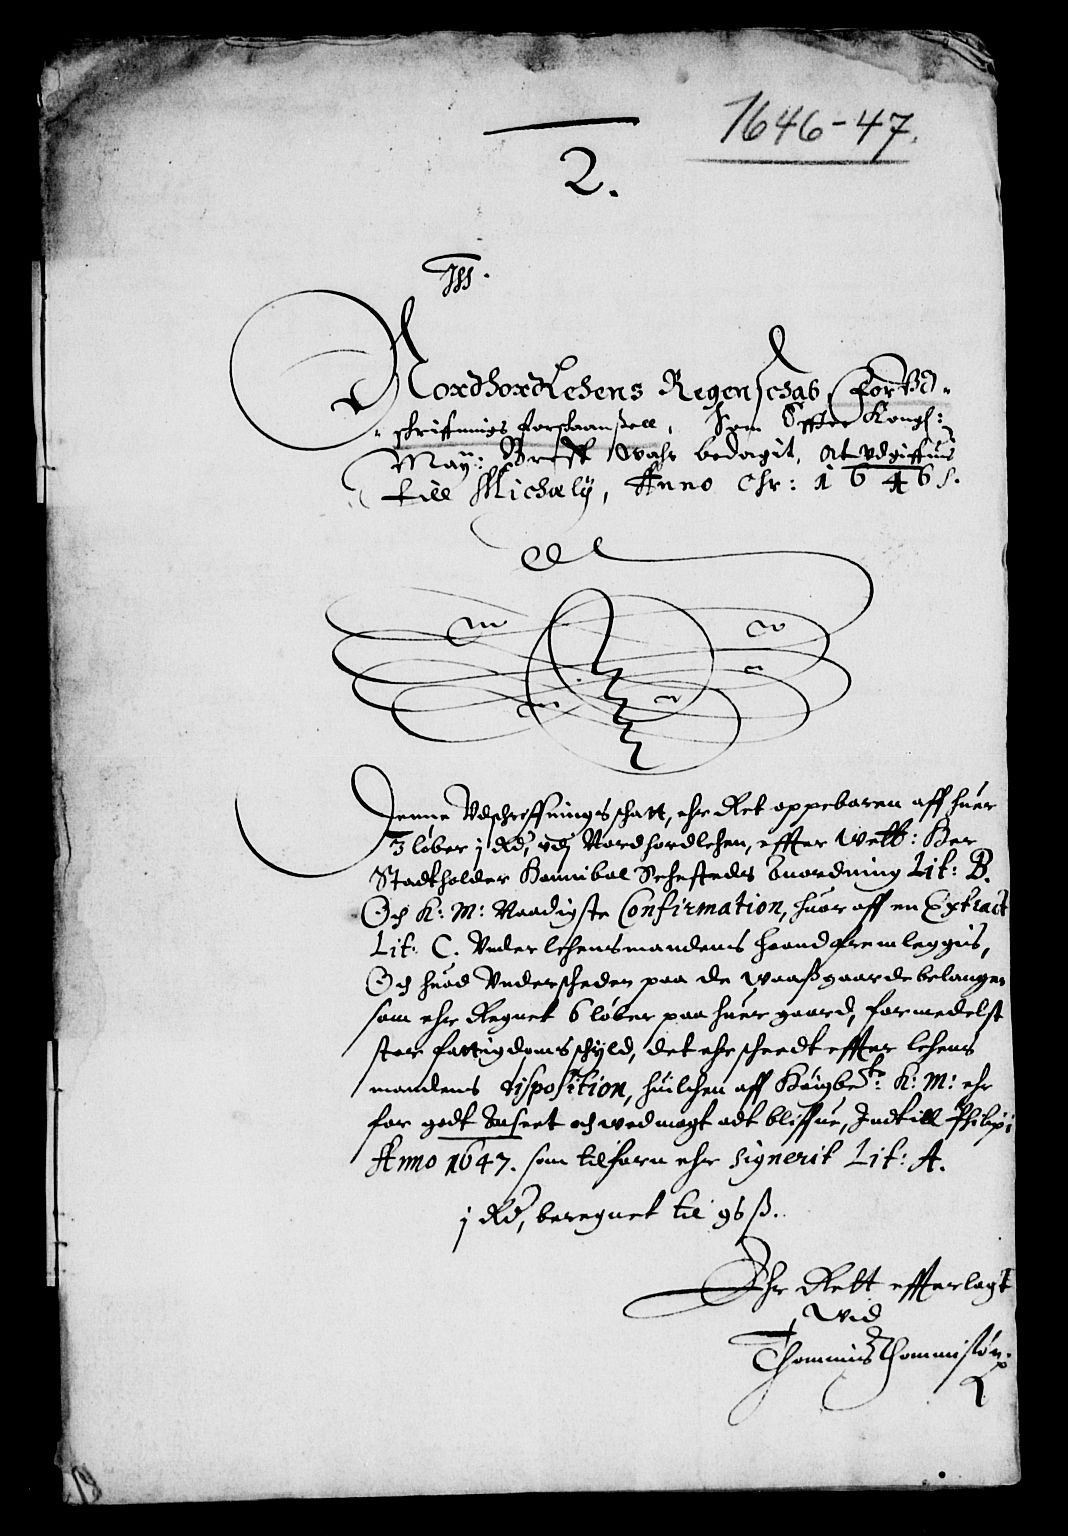 1646-47.
2.
Nordhordlehens Regenschab, for Vd-
schriffnings forstaanßell, Som Effter Kongl:
May: Breff wahr bedagit, at vdgiffuis
till Michaely, Anno Chr: 1646.
Denne Vdschriffnings schatt, ehr Ret oppebaren aff huer
3 løber j Rd, vdj Nordhordlehen, effter Welb: Her
Stadtholder Hannibal Sehesteds Anordning Lit: B.
Och K: M: Naadigste Confirmation, huor aff en Extract
Lit: C. Vnder lehensmandens haand fremleggis,
Och huad Vnderscheden paa de waaßgaarde belanger
som ehr Regnet 6 løber paa huer gaard, formedelst
stor fattigdoms schyld, det ehr scheedt effter lehens
mandens disposition, huilchen aff Høigbe: K: M: ehr
for godt Anseet och wed magt adt bliffue, Indtill Philipi
Anno 1647. som tilforn ehr signerit Lit: A.
j Rd, beregnet til 96 ß.
Ehr Rett effterlagt
wid
Thommis Thommisøn